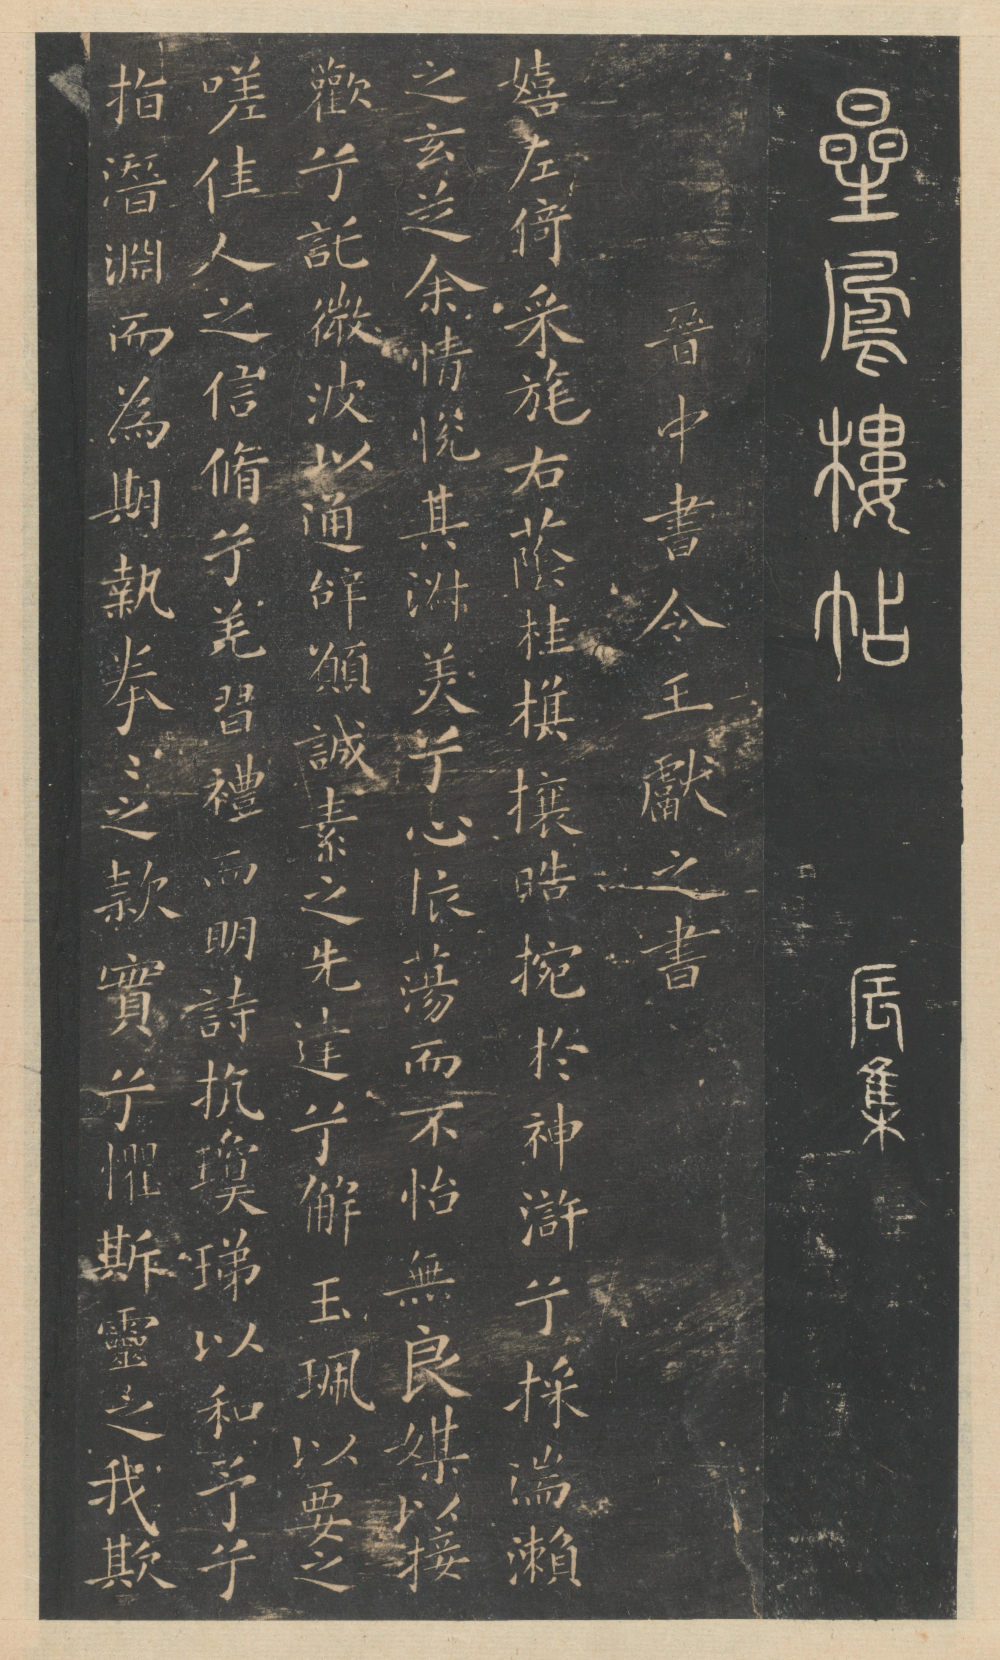 星鳳樓帖 辰集
晉中書令王獻之書
嬉左倚采旄右蔭桂旗攘皓捥於神滸兮採湍瀨
之玄芝余情悅其淑美兮心振蕩而不怡無良媒以接
歡兮託微波以通辭願誠素之先達兮解玉珮以要之
嗟佳人之信脩兮羌習禮而明詩抗瓊珶以和予兮
指潛淵而為期執拳〻之款實兮懼斯靈之我欺